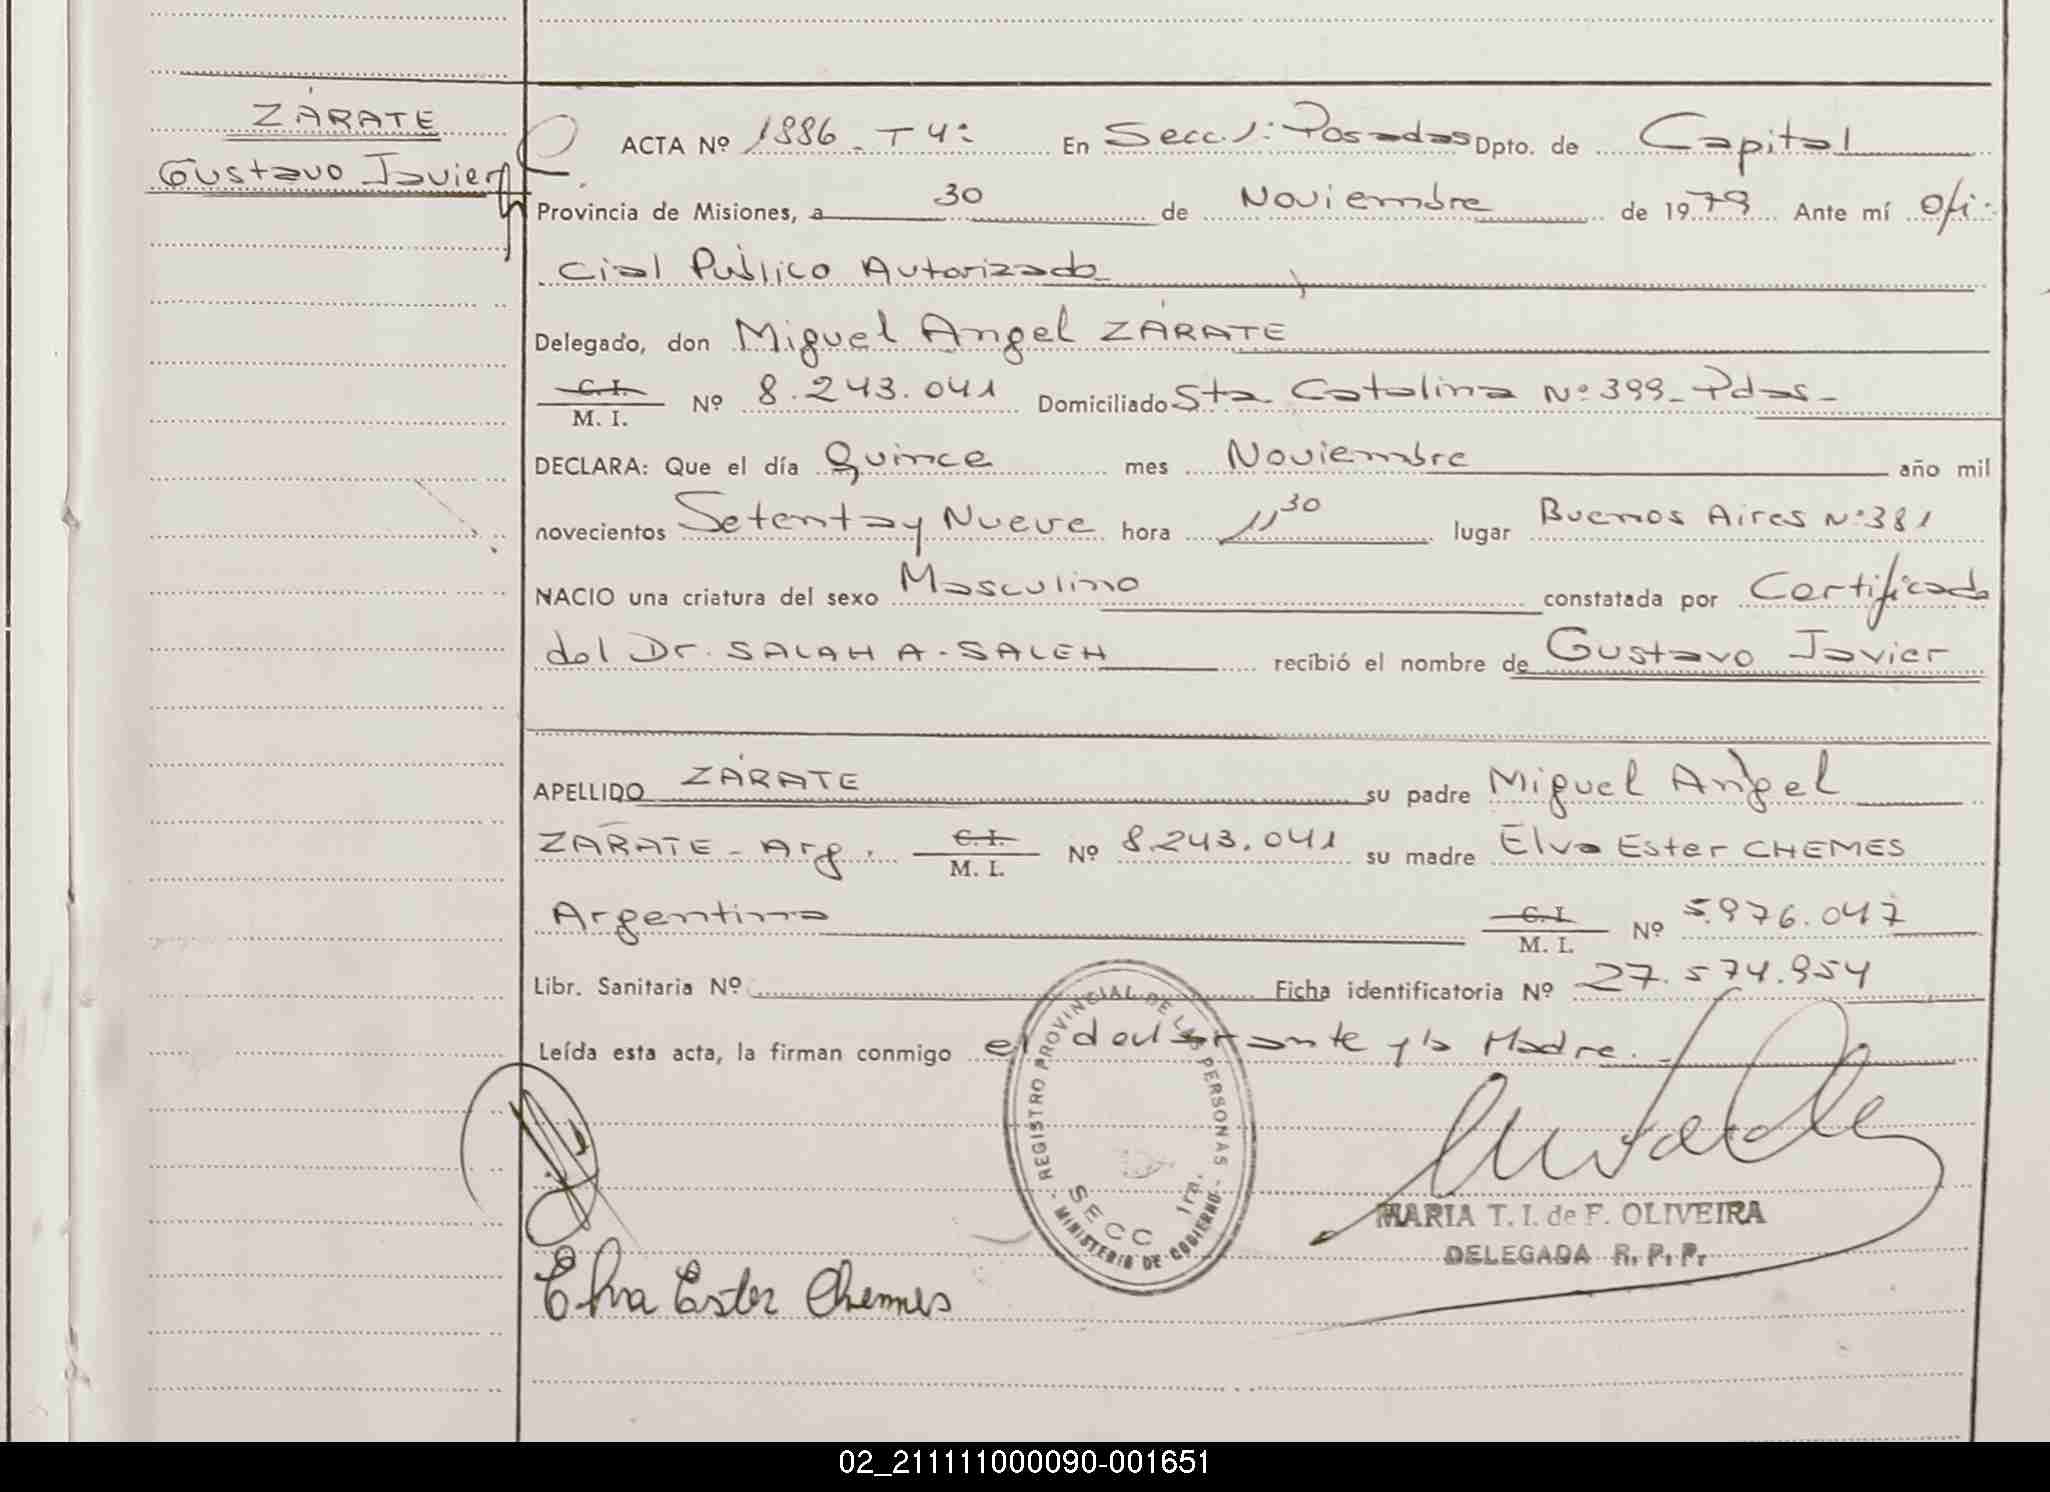 ZÁRATE
Gustavo Javier
ACTA Nº 1886. T 4º En Secc. 1º Posadas Dpto. de Capital
Provincia de Misiones, a 30 de Noviembre de 1979 Ante mí Ofi-
cial Público Autorizado
Delegado, don Miguel Angel ZÁRATE
C. I. M. I. Nº 8.243.041 Domiciliado Sta Catalina Nº 399 - Pdas -
DECLARA: Que el día Quince mes Noviembre año mil
novecientos Setenta y Nueve hora 11 30 lugar Buenos Aires Nº 381
NACIO una criatura del sexo Masculino constatada por Certificado
del Dr. SALAH A. SALEH recibió el nombre de Gustavo Javier
APELLIDO ZÁRATE su padre Miguel Angel
ZÁRATE - Arg. C. I. M. I. Nº 8.243.041 su madre Elva Ester CHEMES
Argentina C. I. M. I. Nº 5.976.047
Libr. Sanitaria Nº Ficha identificatoria Nº 27.574.954
Leída esta acta, la firman conmigo el declarante y la Madre.
- REGISTRO PROVINCIAL DE LAS PERSONAS -
SECC 1ra.
MINISTERIO DE GOBIERNO
MARIA T. I. de F. OLIVEIRA
DELEGADA R. P. P.
Elva Ester Chemes
02_211111000090-001651